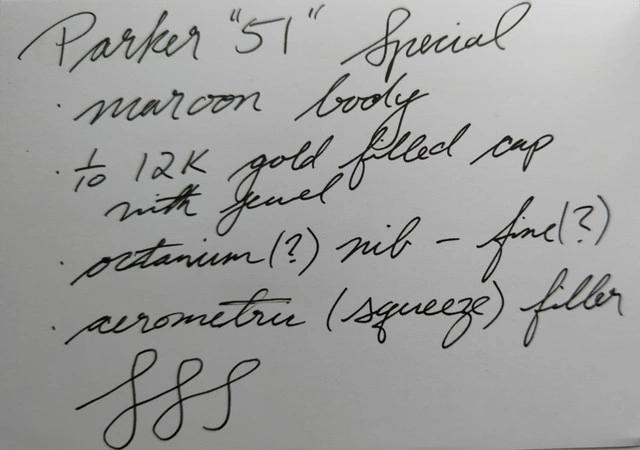 Parker "51" Special
· maroon body
· 1/10 12K gold filled cap
with jewel
· octanium(?) nib - fine(?)
· aerometric (squeeze) filler